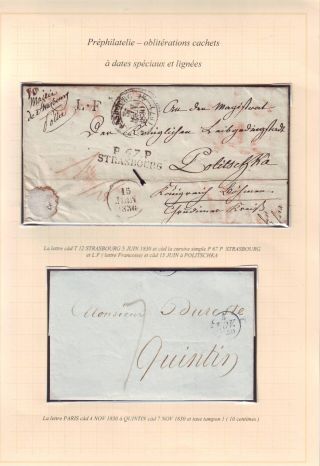 Préphilatelie – oblitérations cachets
à dates spéciaux et lignées
Mairie
de Strasbourg
Police
L.F
An den Magistrat
Der Königlichen Leibgedingstadt
P. 67. P
STRASBOURG
Politschka
Königreich Böhmen
Chrudimer Kreis
15
JUIN
1830
La lettre càd T 12 STRASBOURG 5 JUIN 1830 et càd la cursive simple P 67 P STRASBOURG
et L.F (lettre Francese) et càd 15 JUIN à POLITSCHKA
7
Monsieur Dureste
Quintin
La lettre PARIS càd 4 NOV 1830 à QUINTIN càd 7 NOV 1830 et taxe tampon 1 ( 10 centimes )